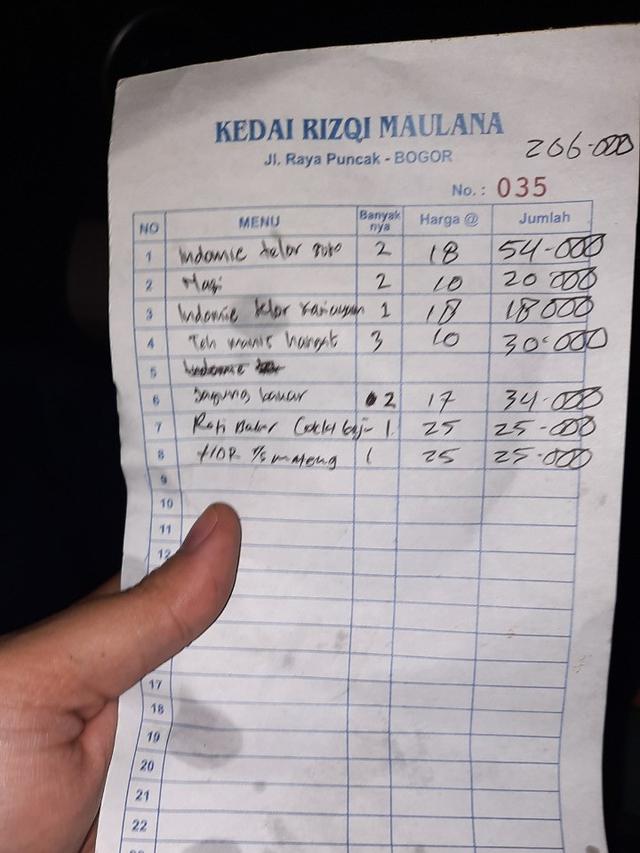 KEDAI RIZQI MAULANA
Jl. Raya Puncak - BOGOR
206.000
No. : 035
NO MENU Banyak nya Harga @ Jumlah
1 Indomie telor soto 2 18 54.000
2 Nasi 2 10 20 000
3 Indomie telor 1 18 18000
4 Teh manis hangat 3 10 30.000
5 Indomie
6 Jagung bakar 2 17 34.000
7 Roti Bakar Coklat keju 1 25 25.000
8 1 25 25.000
9
10
11
12
17
18
19
20
21
22